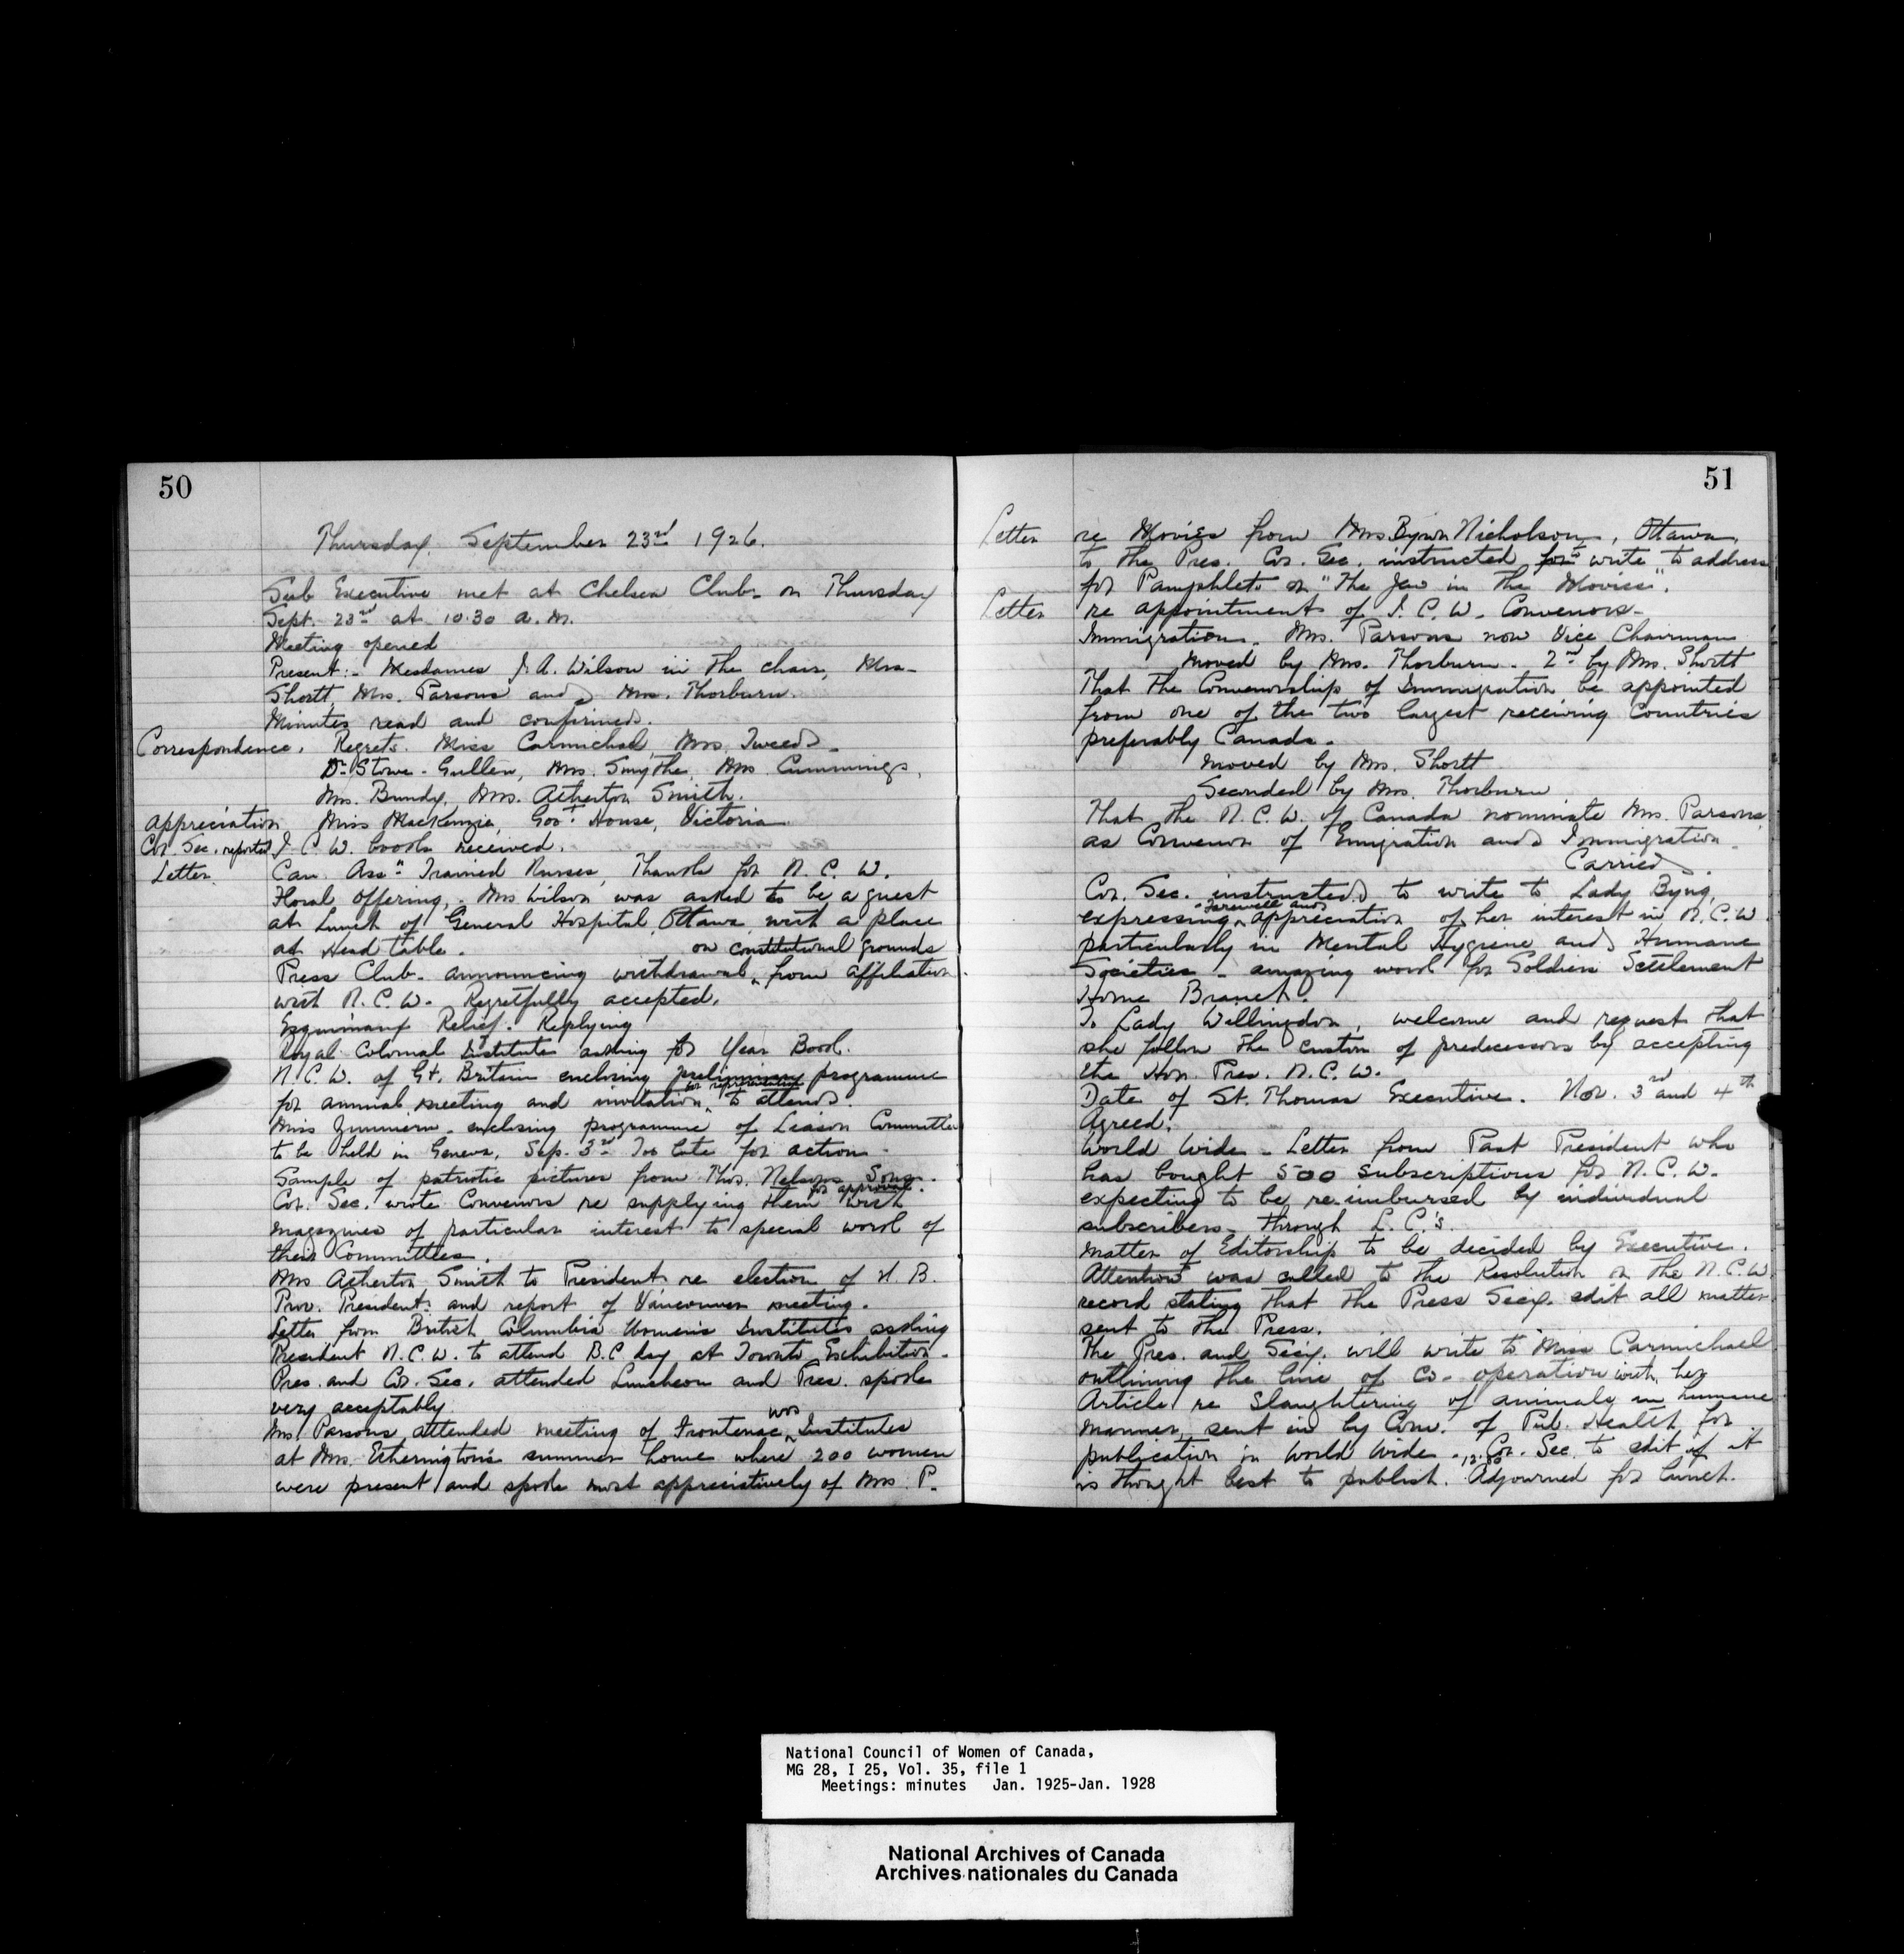 50
Thursday. September 23rd 1926.
Sub Executive met at Chelsea Club - on Thursday
Sept. 23rd at 10.30 a.m.
Meeting opened
Present:- Mesdames J. A. Wilson in the chair, Mrs-
Shortt, Mrs. Parsons and Mrs. Thorburn.
Minutes read and confirmed.
Correspondence. Regrets. Miss Carmichael, Mrs. Tweed-
Dr Stowe-Gullen, Mrs. Smythe, Mrs. Cummings,
Mrs. Bundy, Mrs. Atherton Smith.
Appreciation Miss MacKenzie, Govt House, Victoria
Cor. Sec. reported I. C. W. books received.
Letter Can. Assn Trained Nurses, Thanks for N. C. W.
Floral offering. Mrs Wilson was asked to be a guest
at Lunch of General Hospital, Ottawa, with a place
at Head table.
Press Club - announcing withdrawal ^ on constitutional grounds from affiliation
with N. C. W. Regretfully accepted.
Esquimaux Relief. Replying
Royal Colonial Institute asking for Year Book.
N. C. W. of Gt. Britain enclosing preliminary programme
for annual meeting and invitation ^ for representative to attend.
Miss Zimmern - enclosing programme of Liason Committee
to be held in Geneva, Sep. 3rd Too late for action.
Sample of patriotic pictures from Thos. Nelsons Sons. for approval.
Cor. Sec. wrote Convenors re supplying them with
magazines of particular interest to special work of
their Committees.
Mrs Atherton Smith to President re election of N. B.
Prov. President: and report of Vancouver meeting.
Letter from British Columbia Women's Institutes asking
President N. C. W. to attend B.C day at Toronto Exhibition.
Pres. and Cor. Sec. attended Luncheon and Pres. spoke
very acceptably.
Mrs. Parsons attended meeting of Frontenac ^ wos Institutes
at Mrs. Etherington's summer home where 200 women
were present and spoke most appreciatively of Mrs. P.
51
Letter re Movies from Mrs. Byron Nicholson, Ottawa,
to the Pres. Cor. Sec. instructed for to write to address
for Pamphlets on "The Jew in the Movies".
Letter re appointment of I. C. W. Convenors-
Immigration. Mrs. Parsons now Vice Chairman
Moved by Mrs. Thorburn - 2nd by Mrs. Shortt
That the Convenorship of Immigration be appointed
from one of the two largest receiving Countries
preferably Canada.
Moved by Mrs. Shortt
Seconded by Mrs. Thorburn
That the N. C. W. of Canada nominate Mrs. Parsons
as Convenor of Emigration and Immigration.
Carried.
Cor. Sec. instructed to write to Lady Byng,
expressing ^ farewell and appreciation of her interest in N. C. W
particularly in Mental Hygiene and Humane
Societies - amazing work for Soldiers Settlement
Home Branch.
To Lady Willingdon, welcome and request that
she follow the custom of predecessors by accepting
the Hon. Pres. N. C. W.
Date of St. Thomas Executive. Nov. 3rd and 4th
Agreed.
World Wide - Letter from Past President who
has bought 500 subscriptions for N. C. W.
expecting to be re.imbursed by individual
subscribers - through L. C.'s.
Matter of Editorship to be decided by Executive.
Attention was called to the Resolution on the N. C. W.
record stating that the Press Secy. edit all matter
sent to the Press.
The Pres. and Secy. will write to Miss Carmichael
outlining the line of co-operation with her
Article re Slaughtering of animals in humane
manner, sent in by Conv. of Pub. Health for
publication in World Wide. Cor. Sec. to edit if it
is thought best to publish. 12.50 Adjourned for lunch.
National Council of Women of Canada,
MG 28, I 25, Vol. 35, file 1
Meetings: minutes Jan. 1925-Jan. 1928
National Archives of Canada
Archives nationales du Canada